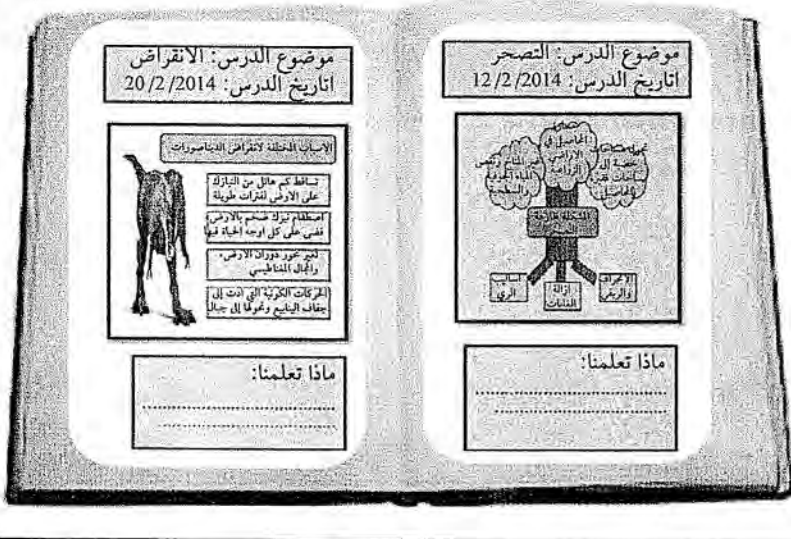 موضوع الدرس: التصحر
اتاريخ الدرس: 12/2/2014
المحاصيل في
الأراضي
الزراعية
خصبة إلى
المحاصيل
تغير المناخ ونقص
المياه الجوفية
والسطحية
المشكلة ظاهرة
التصحر
الانجراف
والريحي
إزالة
الغابات
أساليب
الري
ماذا تعلمنا:
موضوع الدرس: الانقراض
اتاريخ الدرس: 20/2/2014
الأسباب المختلفة لانقراض الديناصورات
تساقط كم هائل من النيازك
على الأرض لفترات طويلة
اصطدام نيزك ضخم بالأرض،
قضى على كل أوجه الحياة فيها
تغير محور دوران الأرض،
والمجال المغناطيسي
الحركات الكونية التي أدت إلى
جفاف الينابيع وتحولها إلى جبال
ماذا تعلمنا: